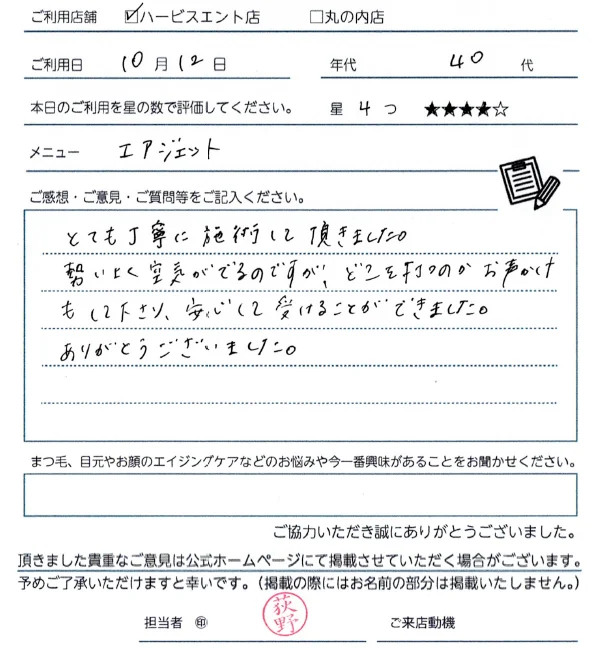 ご利用店舗 ☑ハービスエント店 □丸の内店
ご利用日 10月12日 年代 40代
本日のご利用を星の数で評価してください。 星 4 つ ★★★★☆
メニュー エアジェット
ご感想・ご意見・ご質問等をご記入ください。
とても丁寧に施術して頂きました。
勢いよく空気がでるのですが、どこを打つのかお声かけ
もして下さり、安心して受けることができました。
ありがとうございました。
まつ毛、目元やお顔のエイジングケアなどのお悩みや今一番興味があることをお聞かせください。
ご協力いただき誠にありがとうございました。
頂きました貴重なご意見は公式ホームページにて掲載させていただく場合がございます。
予めご了承いただけますと幸いです。（掲載の際にはお名前の部分は掲載いたしません。）
担当者 ㊞ 荻野 ご来店動機